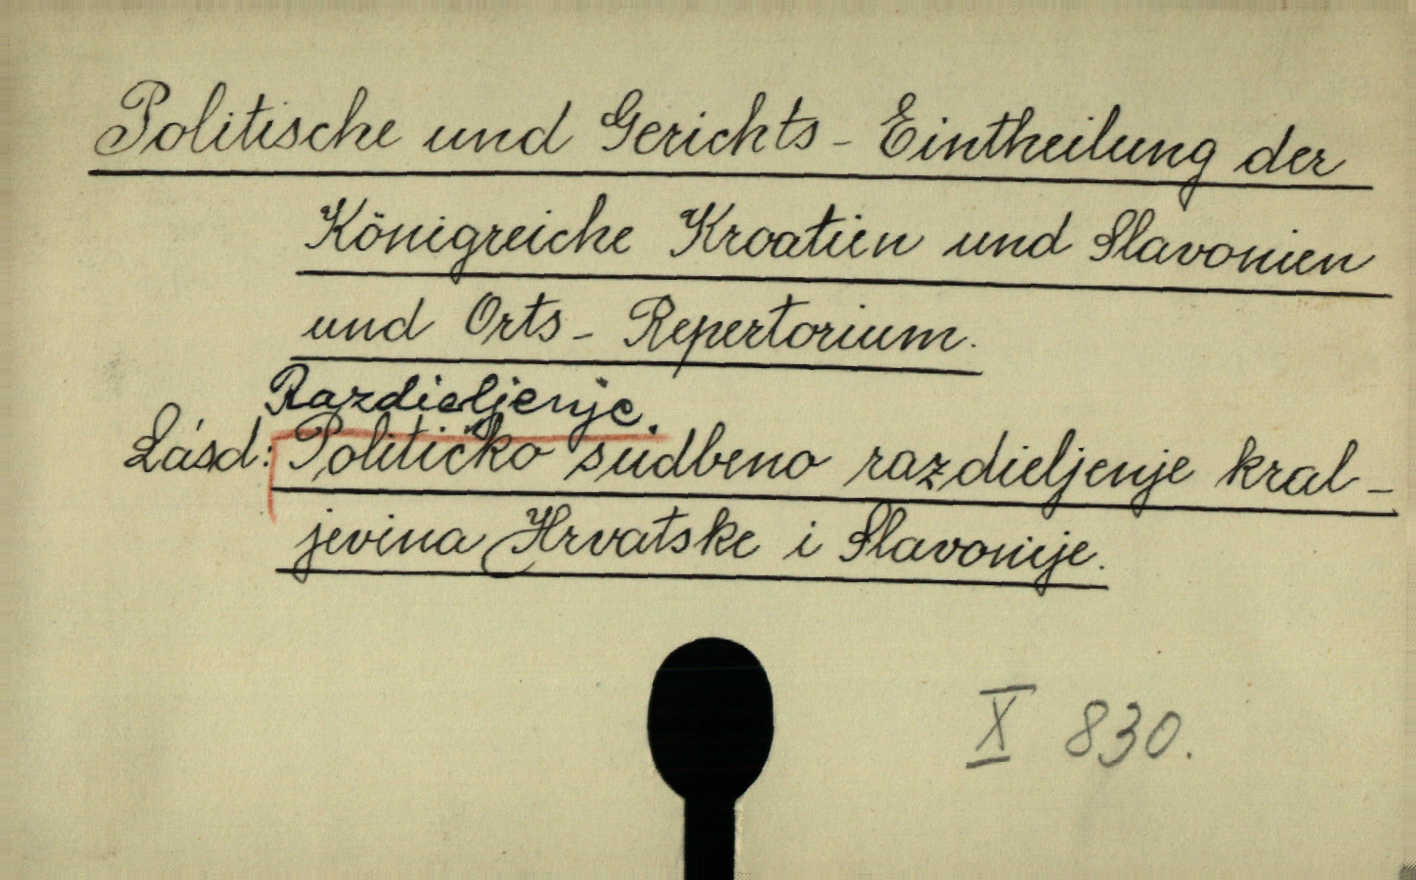 Politische und Gerichts-Eintheilung der
Königreiche Kroatien und Slavonien
und Orts-Repertorium.
Razdieljenje.
Lásd: Političko sudbeno razdieljenje kral-
jevina Hrvatske i Slavonije.
X 830.